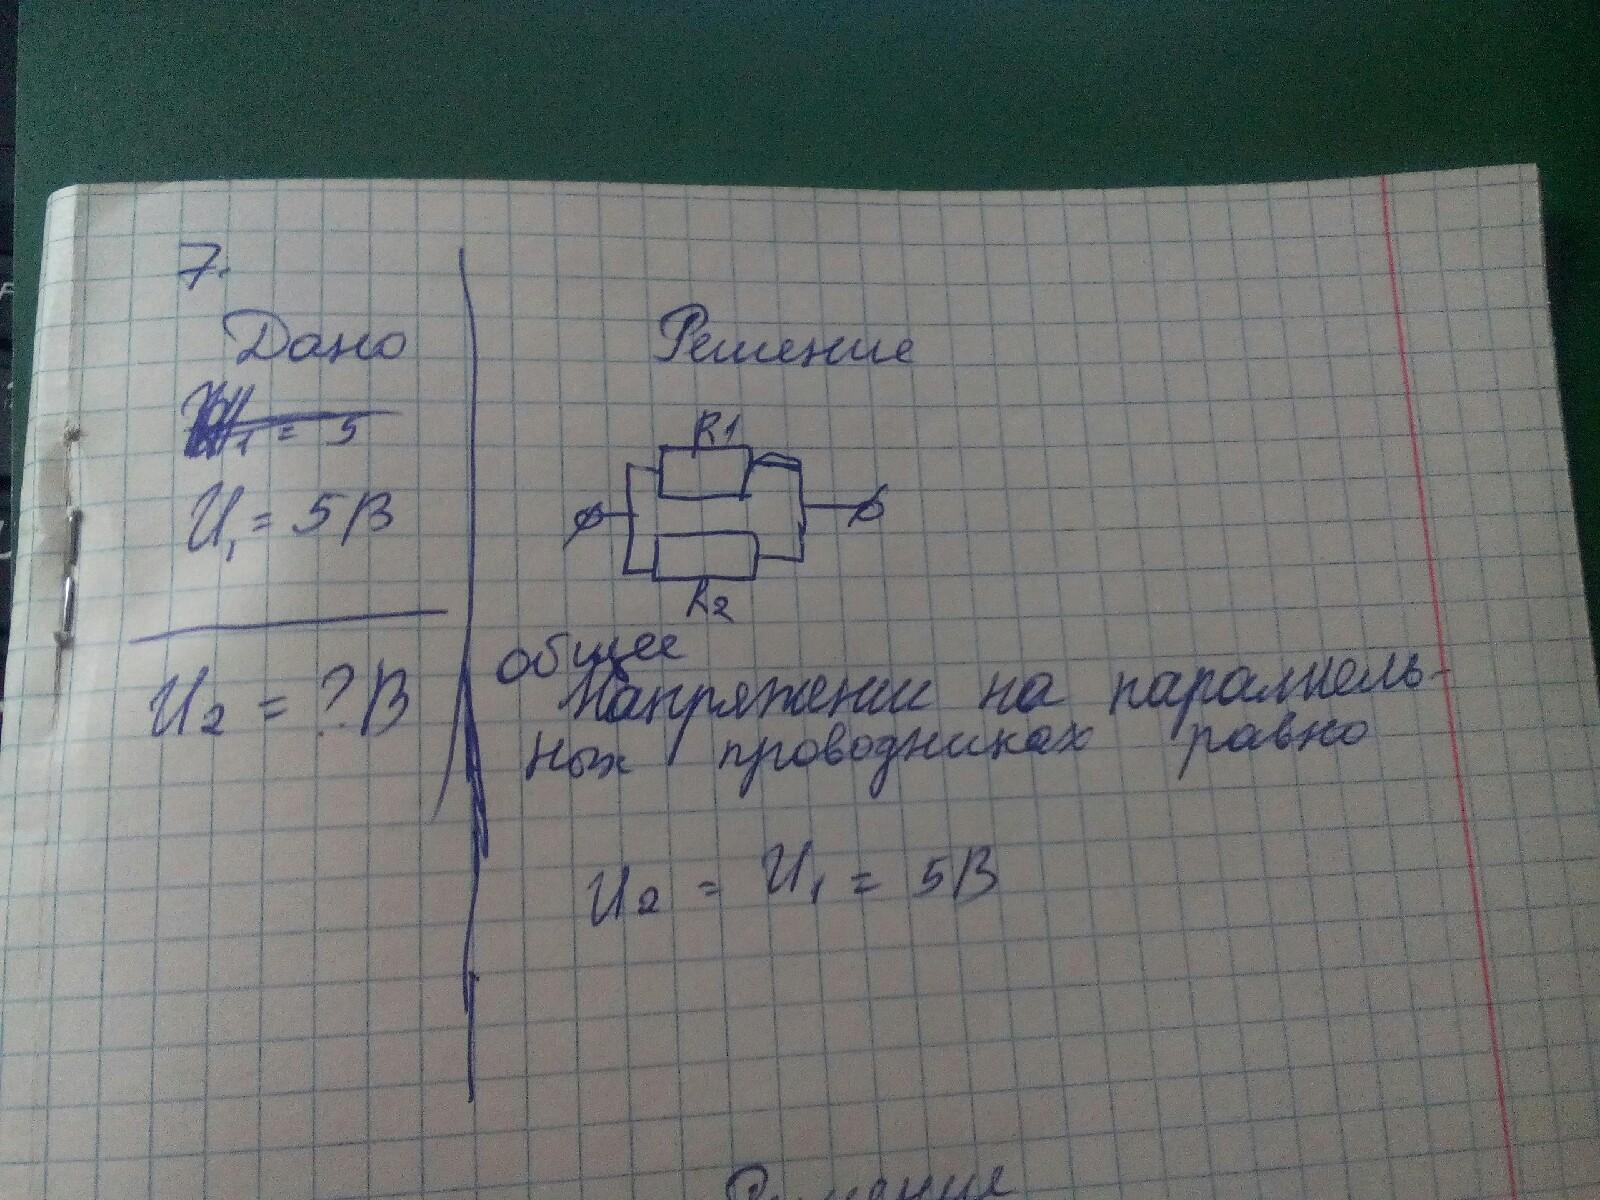 7.
Дано
1 = 5
U1 = 5В
U2 = ?В
Решение
R1
R2
общее
Напряжении на параллель-
ных проводниках равно
U2 = U1 = 5В
Решение